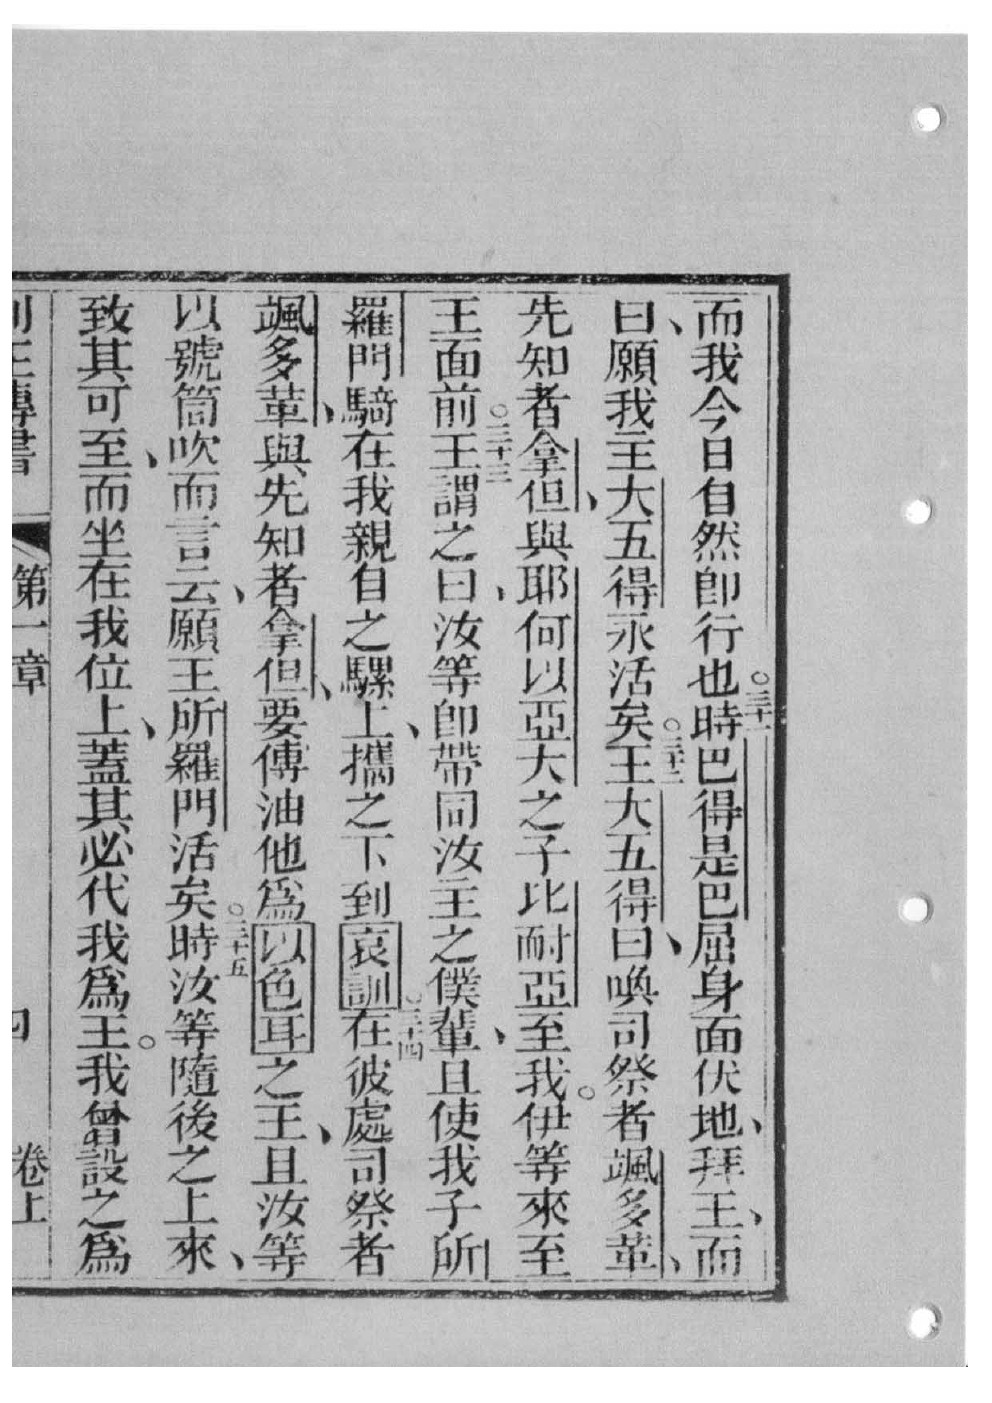 而我今日自然卽行也○三十一時巴得是巴屈身面伏地、拜王、而
曰、願我主大五得永活矣○三十二王大五得曰、喚司祭者颯多革、
先知者拿但、與耶何以亞大之子比耐亞至我。伊等來至
王面前○三十三王謂之曰、汝等卽帶同汝主之僕輩、且使我子所
羅門騎在我親自之騾上、攜之下到哀訓○三十四在彼處司祭者
颯多革、與先知者拿但、要傅油他爲以色耳之王、且汝等
以號筒吹而言云、願王所羅門活矣○三十五時汝等隨後之上來、
致其可至、而坐在我位上、蓋其必代我爲王。我曾設之爲
列王傳書 第一章 四 卷上